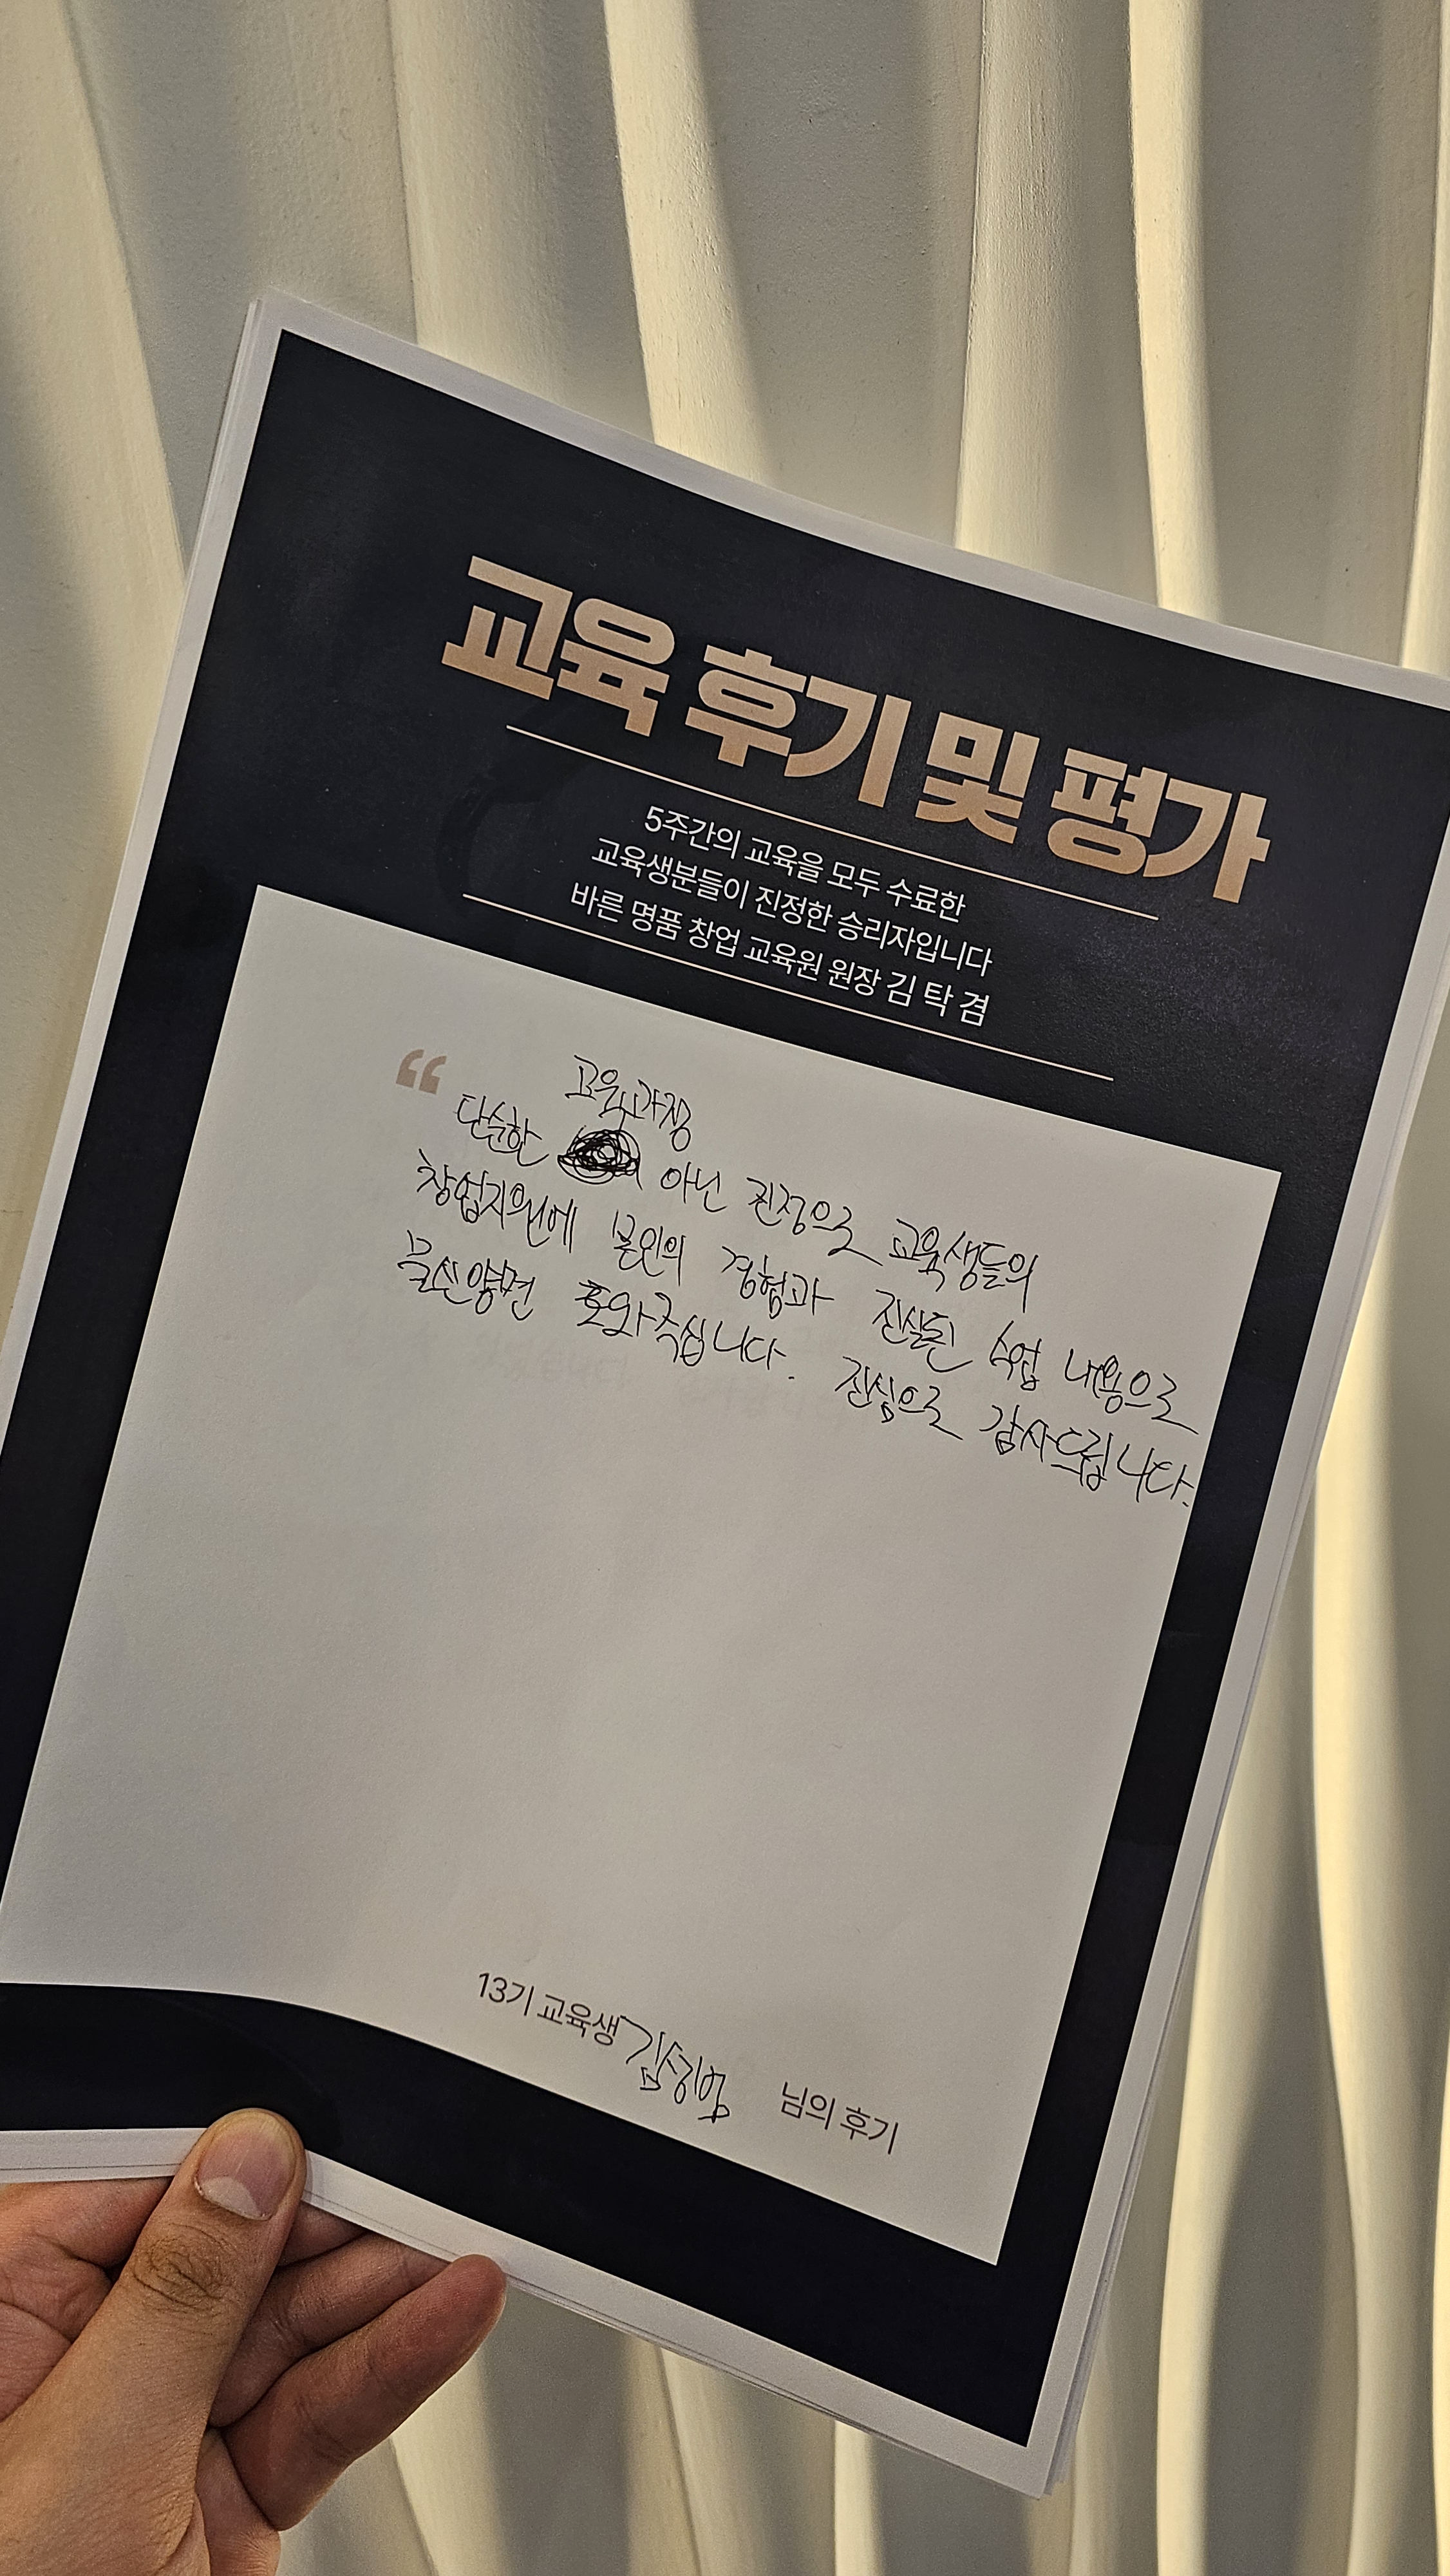 교육 후기 및 평가
5주간의 교육을 모두 수료한
교육생분들이 진정한 승리자입니다
바른 명품 창업 교육원 원장 김 탁 겸
“
교육과정
단순한 아닌 진정으로 교육생들의
창업지원에 본인의 경험과 진실된 수업 내용으로
물신양면 도와주십니다. 진심으로 감사드립니다.
13기 교육생 님의 후기